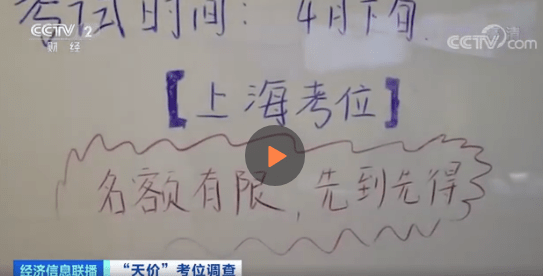 CCTV 2
财经
考试时间：4月下旬
CCTV.com
【上海考位】
名额有限，先到先得
经济信息联播
“天价”考位调查